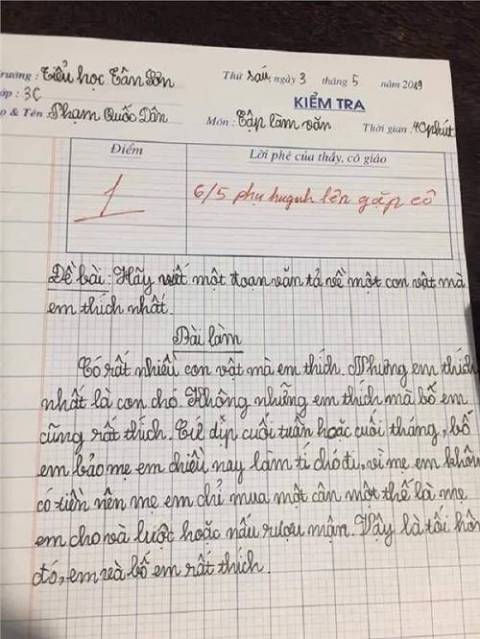 Trường : Tiểu học Tân Sơn Thứ sáu, ngày 3 tháng 5 năm 2019
Lớp : 3C KIỂM TRA
Họ & Tên : Phạm Quốc Dân Môn : Tập làm văn Thời gian : 40 phút
Điểm Lời phê của thầy, cô giáo
1 6/5 phụ huynh lên gặp cô
Đề bài : Hãy viết một đoạn văn tả về một con vật mà
em thích nhất.
Bài làm
Có rất nhiều con vật mà em thích. Nhưng em thích
nhất là con chó. Không những em thích mà bố em
cũng rất thích. Cứ dịp cuối tuần hoặc cuối tháng, bố
em bảo mẹ em chiều nay làm tí chó đi, vì mẹ em không
có tiền nên mẹ em chỉ mua một cân một thế là mẹ
em cho và luộc hoặc nấu rượu mận. Vậy là tối hôm
đó, em và bố em rất thích.